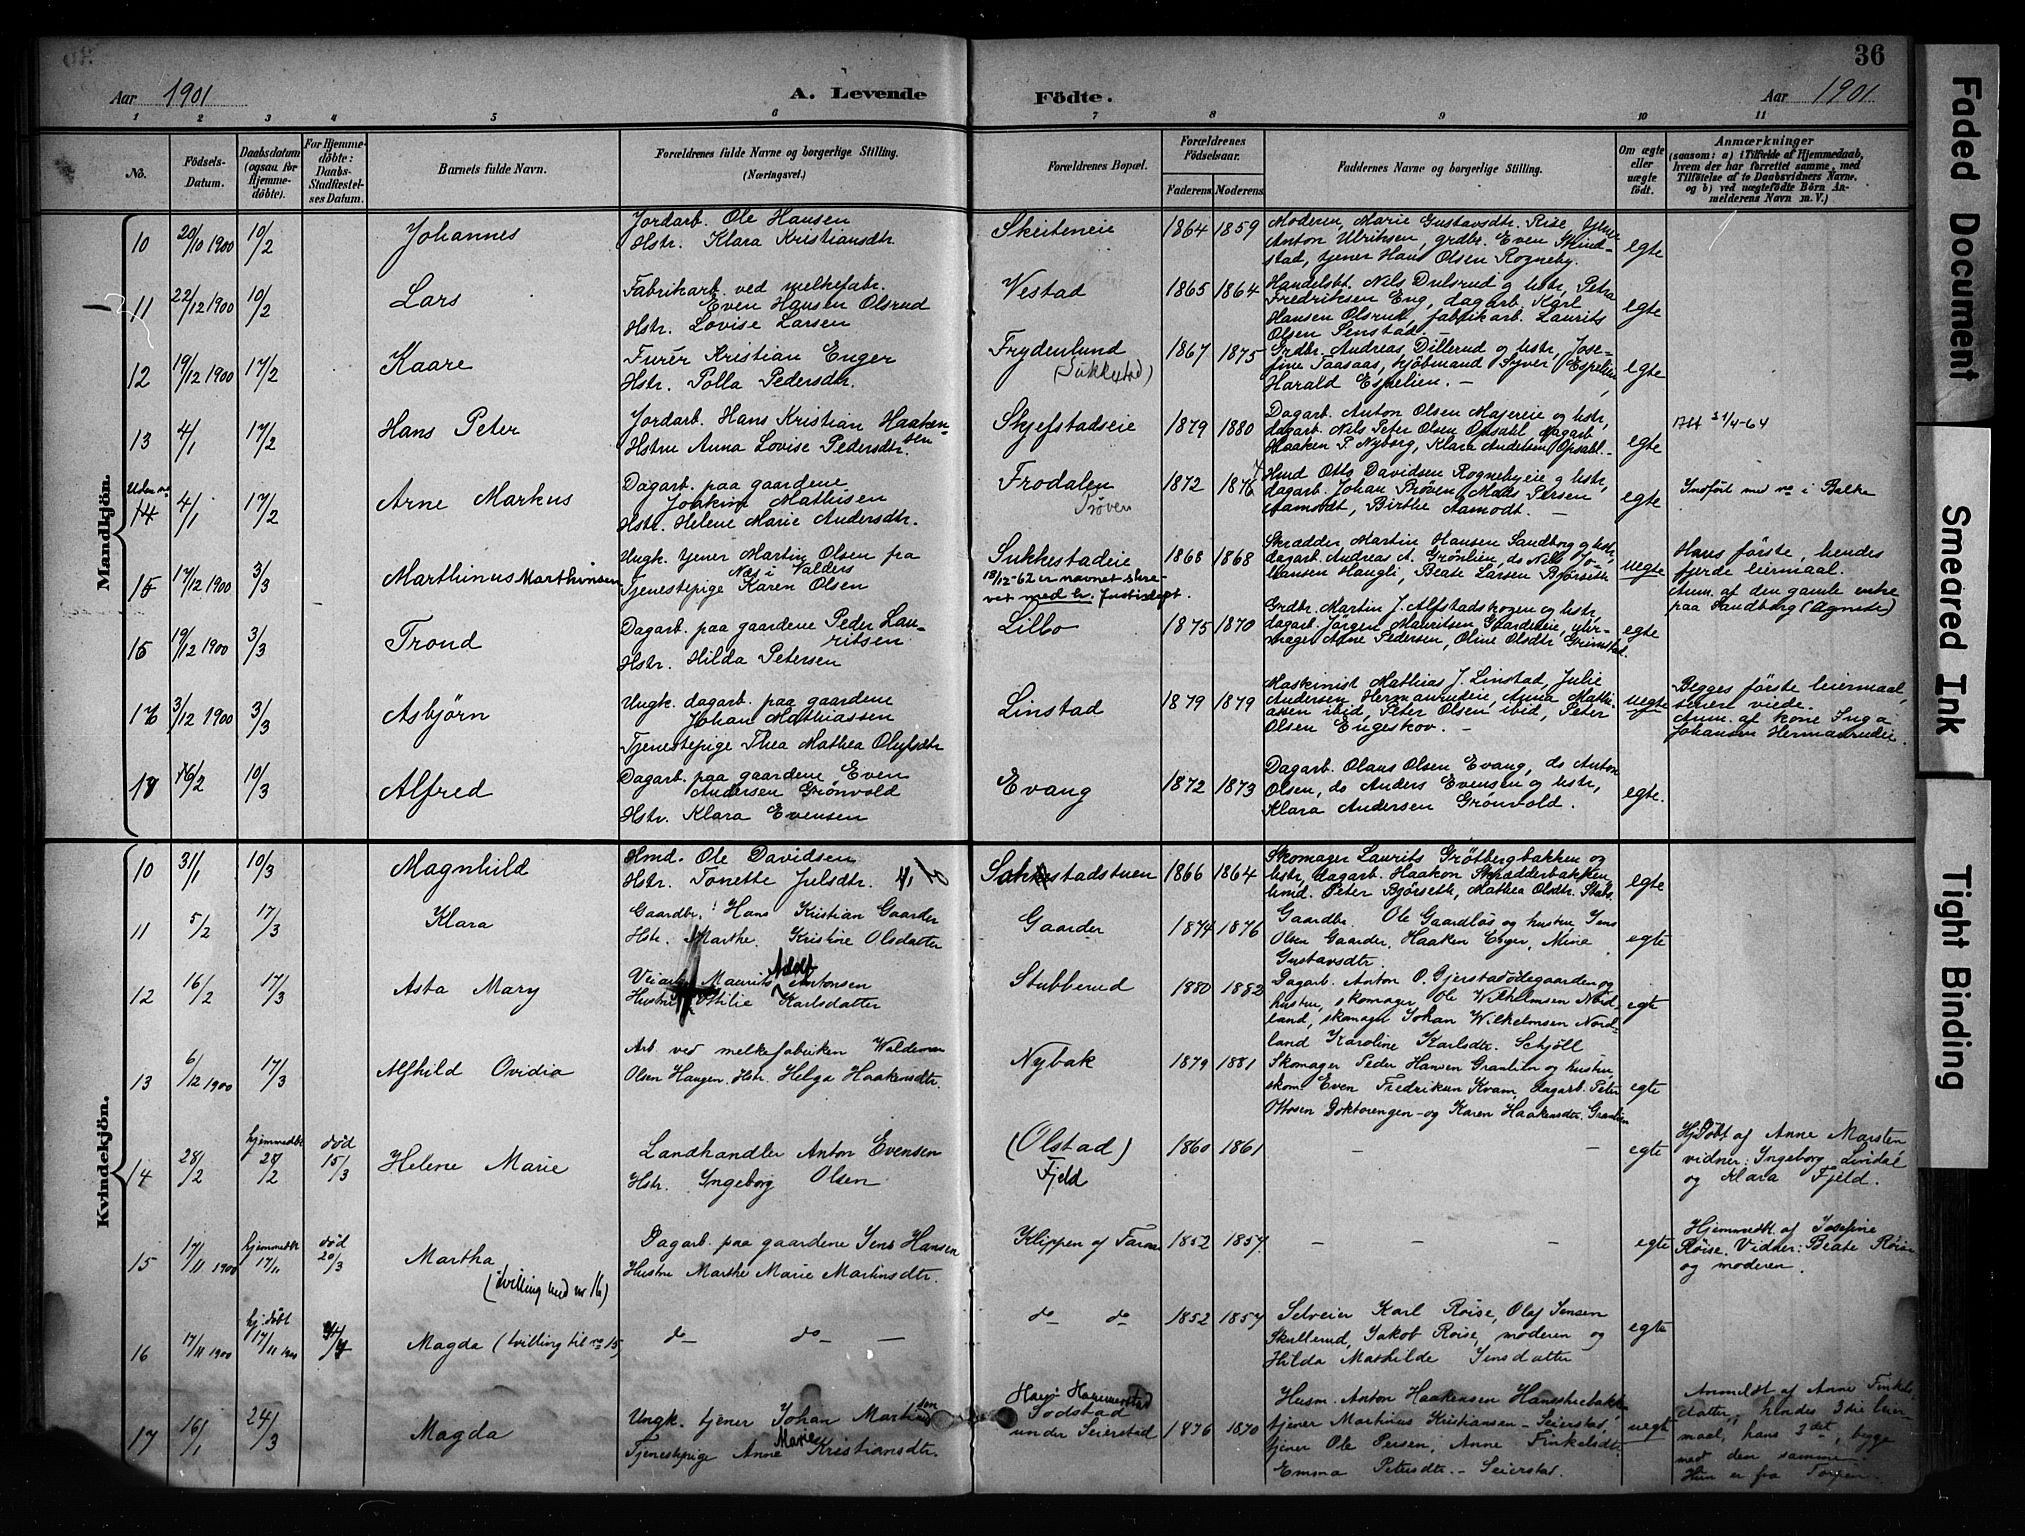 36
Aar 1901
A. Levende
Födte.
Aar 1901
1 2 3 4 5 6 7 8 9 10 11
No.
Födsels-Datum.
Daabsdatum (ogsaa for Hjemmedöbte).
For Hjemmedöbte: Daabs-Stadfæstelses Datum.
Barnets fulde Navn.
Forældrenes fulde Navne og borgerlige Stilling. (Næringsvei.)
Forældrenes Bopæl.
Forældrenes Födselsaar.
Faderens Moderens
Faddernes Navne og borgerlige Stilling.
Om ægte eller uægte födt.
Anmærkninger
(saasom: a) i Tilfælde af Hjemmedaab, hvem der har forrettet samme, med Tilföielse af to Daabsvidners Navne, og b) ved uægtefödte Börn Anmelderens Navn m. V.)
Mandkjön.
10 20/10 1900 10/2 Johannes
Jordarb. Ole Hansen
Hstr. Klara Kristiansdtr.
Skeiteneie 1864 1859
Moderen, Marie Gustavsdtr. Rise, tjener
Anton Ulriksen, grdbr. Even Skindstad, tjener Hans Olsen Rogneby.
egte
11 22/12 1900 10/2 Lars
Fabrikarb. ved melkefabr.
Even Hansen Olsrud
Hstr. Lovise Larsen
Vestad 1865 1864
Handelsbt. Nils Dulsrud og hstr, Petra
Fredriksen Eng, dagarb. Karl
Hansen Olsrud, fabrikarb. Laurits
Olsen Senstad.
egte
12 19/12 1900 17/2 Kaare
Furér Kristian Enger
Hstr. Polla Pedersdtr.
Frydenlund
(Sukkestad)
1867 1875
Grdbr. Andreas Dillerud og hstr, Josefine Taasaas, kjöbmand Syver Espelien,
Harald Espelien. —
egte
13 4/1 17/2 Hans Peter
Jordarb. Hans Kristian Haakensen
Hstru Anna Lovise Pedersdtr.
Skjefstadeie 1879 1880
Dagarb. Anton Olsen Majereie og hstr,
dagarb. Nils Peter Olsen Opsahl, dagarb
Haaken P. Nyborg, Klara Andersen Opsahl. —
egte
21/4-64
Uden no
14 4/1 17/2 Arne Markus
Dagarb. paa gaardene
Joakim Mathisen
Hstr. Helene Marie Andersdtr.
Frodalen
Prøven
1872 1876
Hmd Otto Davidsen Rognebyeie og hstr,
dagarb. Johan Prøven, Mads Persen
Aamodt, Birthe Aamodt. —
egte
Indfört med no i Balke
15 17/12 1900 3/3 Marthinus Marthinsen
Ungk. tjener Martin Olsen fra
Næs i Valders
Tjenestepige Karen Olsen
Sukkestadeie
18/12-62 er navnet skrevet med h. Justisdept.
1868 1868
Skrædder Martin Hansen Sandborg og hstr,
dagarb. Andreas A. Grønlien, do Nils Johansen Haugli, Beate Larsen Bjørseth
uegte
Hans første, hendes
fjerde leiermaal.
Anm. af den gamle enke
paa Sandborg (Agnete)
16 19/12 1900 3/3 Trond
Dagarb. paa gaardene Peder Lauritsen
Hstr. Hilda Petersen
Lillo 1875 1870
Grdbr. Martin J. Alfstadskogen og hstr,
dagarb. Jørgen Mauritsen Gaardeie, uhrmager Arne Pedersen, Oline Olsdtr Grimstad.
egte
17 3/12 1900 3/3 Asbjörn
Ungk. dagarb. paa gaardene
Johan Mathiassen
Tjenestepige Thea Mathea Olufsdtr
Linstad 1879 1879
Maskinist Mathias J. Linstad, Julie
Andersen Hermanrudeie, Anna Mathiassen ibid, Peter Olsen ibid, Peter
Olsen Engeskov. —
uegte
Begges første leiermaal,
senere viede.
Anm. af kone Inga
Johansen Hermanrudeie.
18 16/2 10/3 Alfred
Dagarb. paa gaardene Even
Andersen Grönvold
Hstr. Klara Evensen
Evang 1872 1873
Dagarb. Olaus Olsen Evang, do Anton
Olsen, do Anders Evensen og hstr,
Klara Andersen Grönvold.
egte.
Kvindekjön.
10 31/1 10/3 Magnhild
Hmd. Ole Davidsen
Hstr. Tonette Julsdtr.
1866 1864
Skomager Laurits Grøtbergbakken og
hstr, dagarb. Haakon Skrædderbakken
hmd. Peter Bjørseth, Mathea Olsdtr. Stabs.
egte
11 5/2 17/3 Klara
Gaardbr. Hans Kristian Gaarder
Hstr. Marthe Kristine Olsdatter
Gaarder 1874 1876
Gaardbr. Ole Gaardløs og hustru, Jens
Olsen Gaarder, Haaken Enger, Mina
Gustavsdtr.
egte
12 16/2 17/3 Asta Mary
Veiarb. Maurits Adolf Antonsen
Hustru Othilie Karlsdatter
Stubberud 1880 1882
Dagarb. Anton O. Gjerstadødegaarden og
hustru, skomager Ole Wilhelmsen Nordland, skomager Johan Wilhelmsen Nordland Karoline Karlsdtr. Schjöll
egte
13 6/12 1900 17/3 Alfhild Ovidia
Arb. ved melkefabriken Waldemar
Olsen Haugen. Hstr. Helga Haakensdtr.
Nybak 1879 1881
Skomager Peder Hansen Granlien og hustru,
skom Even Fredriksen Kvam, dagarb. Peter
Ottosen Doktorengen og Karen Haakensdtr. Granlien
egte
14 28/2 hjemmedöbt 28/2 död 15/3 Helene Marie
Landhandler Anton Evensen
Hstr. Ingeborg Olsen
(Olstad)
Fjeld
1860 1861 — — — egte
Hj.döbt af Anne Marsten
vidner: Ingeborg Lindal
og Klara Fjeld.
15 17/11 1900 hjemmedöbt 17/11 död 20/3 Martha
(tvilling med nr 16)
Dagarb. paa gaardene Jens Hansen
Hustru Marthe Marie Martinsdtr.
Klippen af Faron 1852 1857 — — — egte
Hjemmedöbt af Josefine
Röise. Vidner: Beate Röise
og moderen.
16 17/11 1900 hj.döbt 17/11 1900 Magda (tvilling til no 15)
do — do —
do do 1852 1857
Selveier Karl Röise, Olaf Jensen
Skullerud, Jakob Röise, moderen og
Hilda Mathilde Jensdatter
egte
17 16/1 24/3 Magda
Ungk. tjener Johan Martinsen
Tjenestepige Anne Marie Kristiansdtr.
Sodstad
under Seierstad
1876 1870
Husm. Anton Haakensen
tjener Martinus Kristiansen Seierstad,
tjener Ole Persen, Anne Finkelsdtr.
Emma Petersdtr. — Seierstad.
uegte
Anmeldt af Anne Finkelsdatter, hendes 3die leiermaal, hans 2det, begge
med den samme.
Hun er fra Torpen.
Faded Document
Smeared Ink
Tight Binding